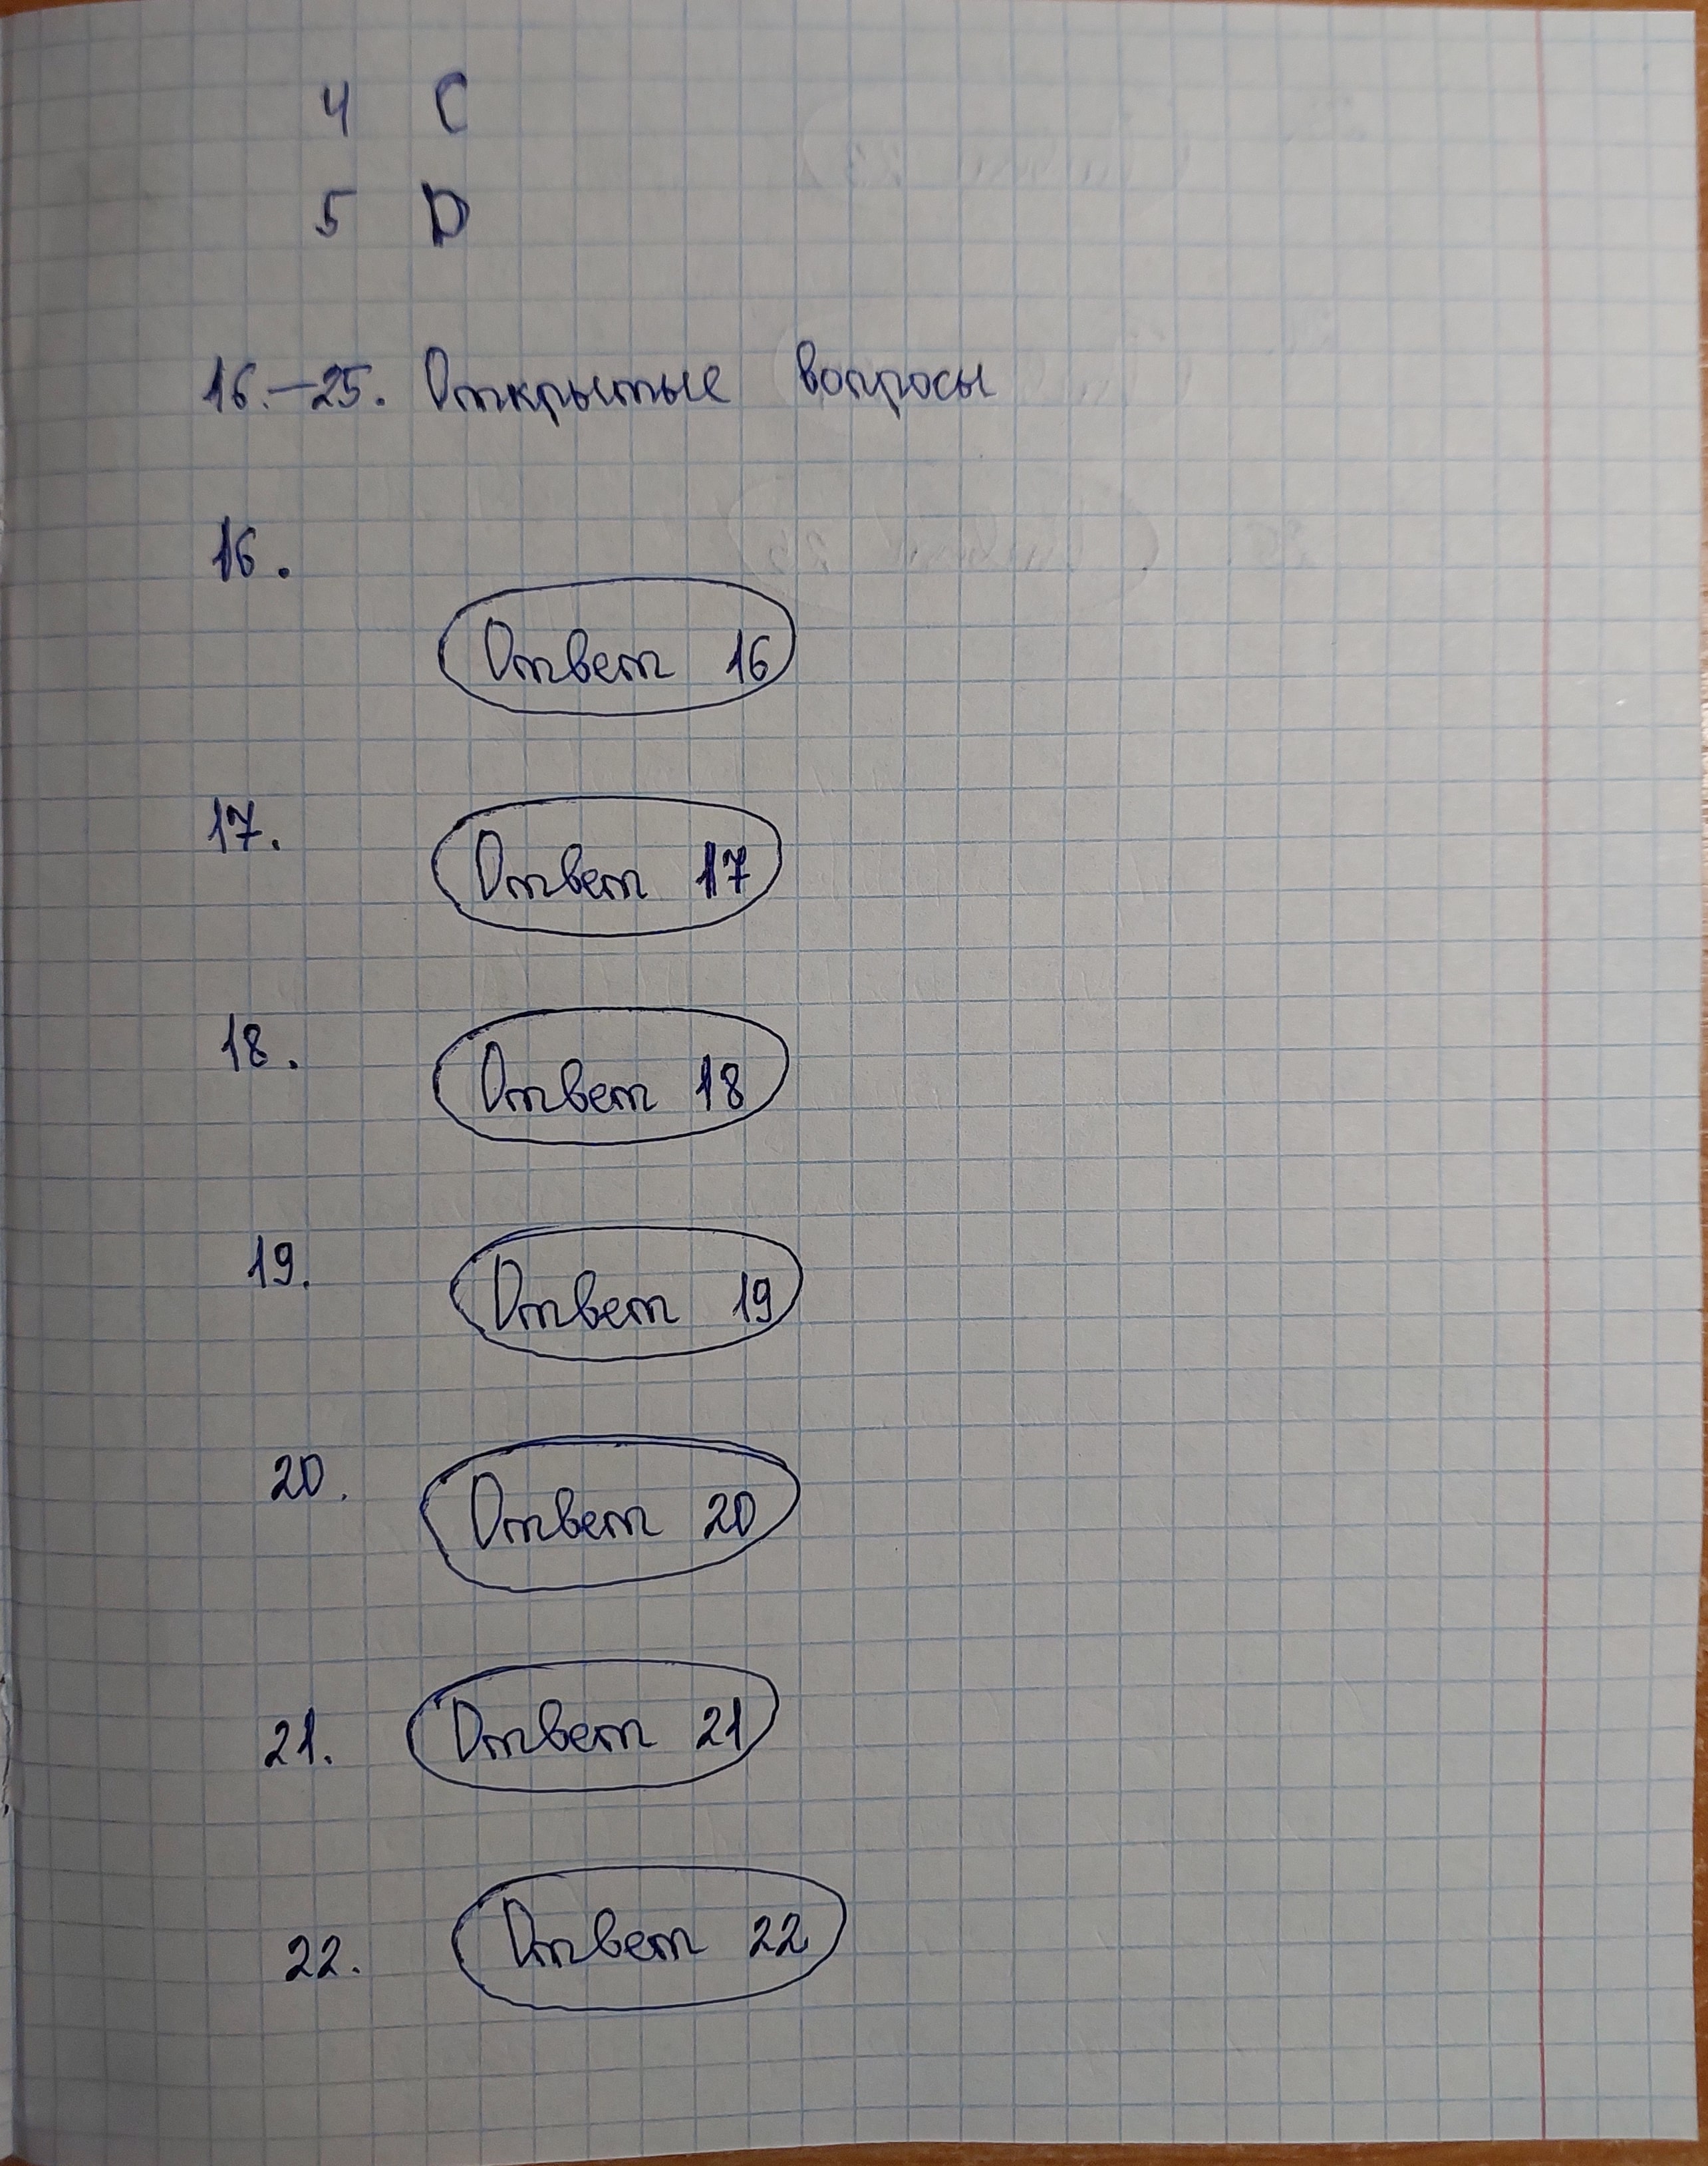 4 C
5 D
16.–25. Открытые вопросы
16.
Ответ 16
17.
Ответ 17
18.
Ответ 18
19.
Ответ 19
20.
Ответ 20
21.
Ответ 21
22.
Ответ 22